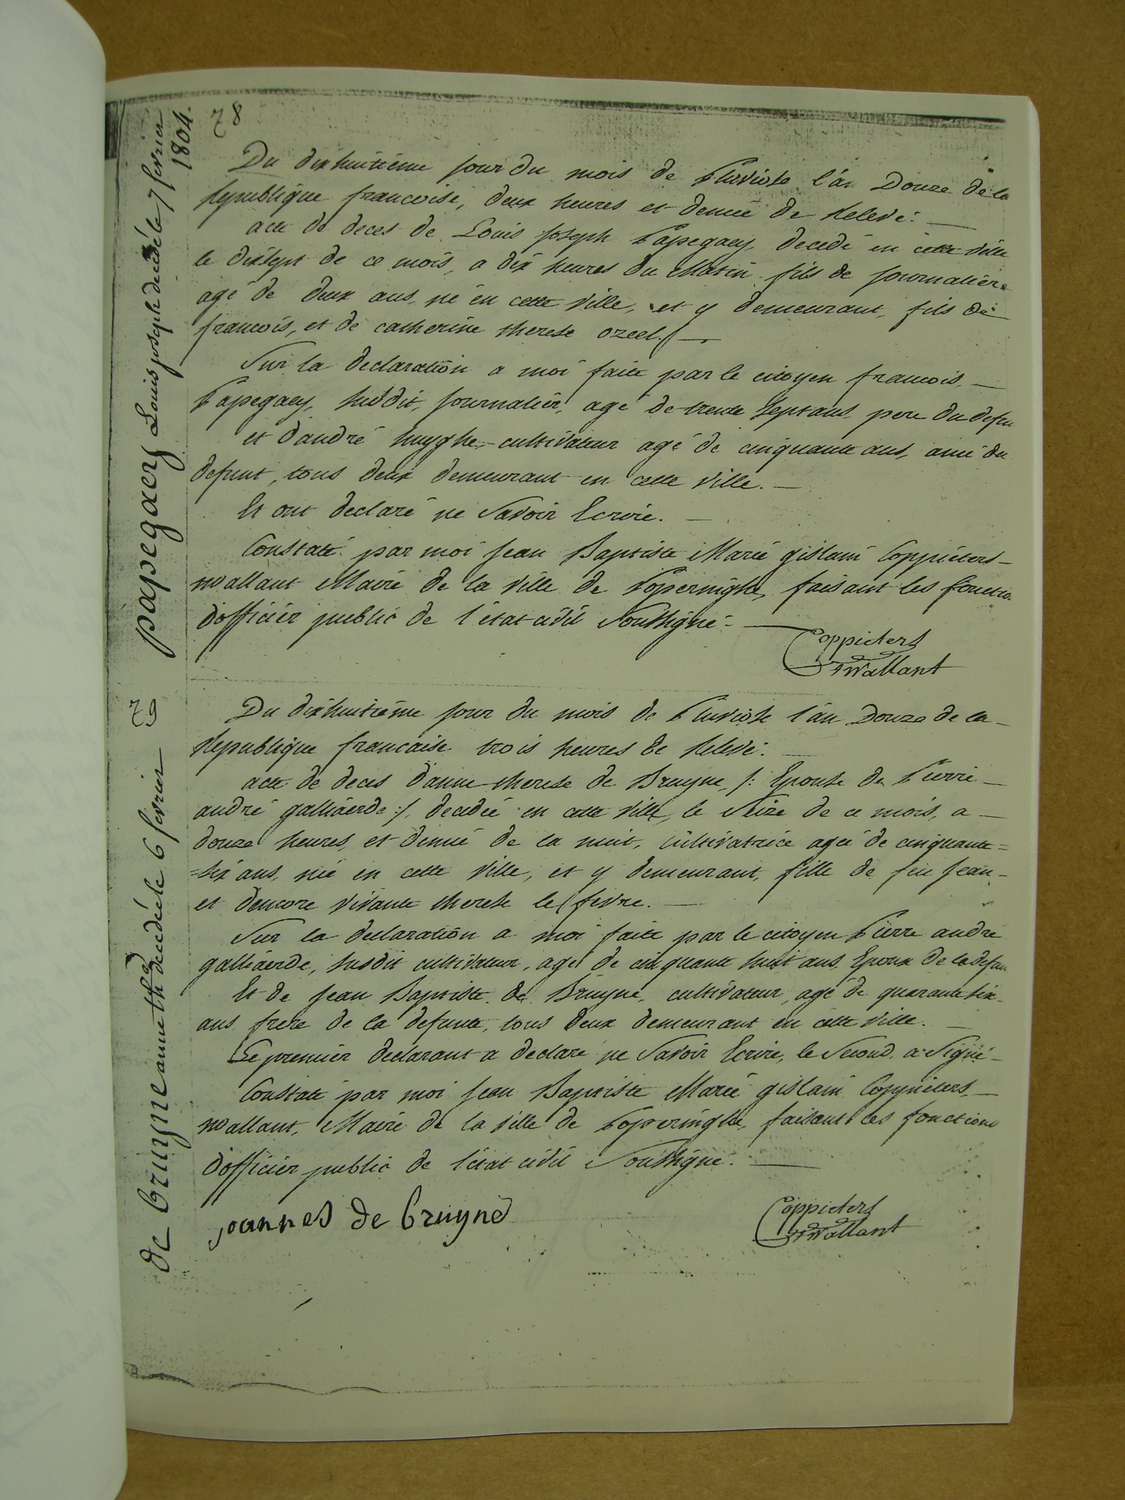 78
papegaey Louis joseph décédé le 7 février 1804.
Du dixhuitiéme jour du mois de Pluviose l'an Douze de la
Republique francoise, deux heures et demie de Relevé.
acte de deces de Louis Joseph Papegaey, decedé en cette ville
le dixsept de ce mois, a dix heures du Matin, fils de journaliére
agé de deux ans, né en cette ville, et y demeurant, fils de
francois, et de catherine therese ozeel. /
Sur la declaration a moi faite par le citoyen francois
Papegaey, susdit, journalier, agé de trente sept ans, pere du defun
et d'andré huyghe, cultivateur agé de cinquante ans, ami du
defunt, tous deux demeurant en cette ville.
Et ont declaré ne Savoir Ecrire.
Constaté par moi Jean Baptiste Marie gislain Coppieters
wallant Maire de la ville de Poperinghe, faisant les fonctio
d'officier public de l'état civil Soussigné.
Coppieters
Wallant
79
de bruyne anne thse decedée le 6 février
Du dixhuitiéme jour du mois de Pluviose l'an Douze de la
Republique francaise trois heures de Relevé.
acte de deces d'anne therese de Bruyne, /: Epouse de Pierre
andré galliaerde :/, decedée en cette ville, le Seize de ce mois, a
douze heures, et demie de la nuit, cultivatrice agée de cinquante=
=six ans, née en cette ville, et y demeurant, fille de feu jean,
et d'encore vivante therese le fevre.
Sur la declaration a moi faite par le citoyen Pierre andré
galliaerde, susdit cultivateur, agé de cinquante huit ans, Epoux de la defun
Et de Jean Baptiste de Bruyne, cultivateur, agé de quarante six
ans, frere de la defunte, tous deux demeurant en cette ville.
Le premier declarant a declaré ne Savoir Ecrire, le Second a Signé
Constaté par moi Jean Baptiste Marie gislain Coppieters
wallant, Maire de la ville de Poperinghe, faisant les fonctions
d'officier public de l'état civil Soussigné.
joannes de bruyne
Coppieters
Wallant